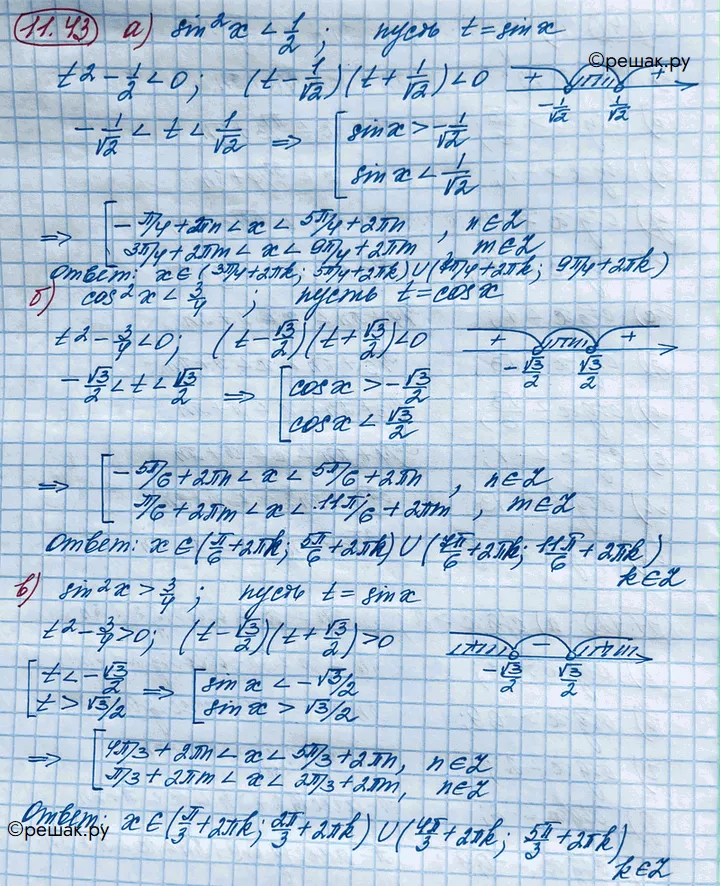 11.43 а) sin²x < 1/2 ; пусть t = sinx
©решак.ру
t² - 1/2 < 0 ; (t - 1/√2)(t + 1/√2) < 0 + +
-1/√2 1/√2
-1/√2 < t < 1/√2 ⇒ [ sinx > -1/√2
sinx < 1/√2
⇒ [ -π/4 + 2πn < x < 5π/4 + 2πn , n ∈ Z
3π/4 + 2πm < x < 9π/4 + 2πm , m ∈ Z
Ответ: x ∈ (3π/4 + 2πk ; 5π/4 + 2πk) ∪ (7π/4 + 2πk ; 9π/4 + 2πk)
б) cos²x < 3/4 ; пусть t = cosx
t² - 3/4 < 0 ; (t - √3/2)(t + √3/2) < 0 + +
-√3/2 √3/2
-√3/2 < t < √3/2 ⇒ [ cosx > -√3/2
cosx < √3/2
⇒ [ -5π/6 + 2πn < x < 5π/6 + 2πn , n ∈ Z
π/6 + 2πm < x < 11π/6 + 2πm , m ∈ Z
Ответ: x ∈ (π/6 + 2πk ; 5π/6 + 2πk) ∪ (7π/6 + 2πk ; 11π/6 + 2πk)
k ∈ Z
в) sin²x > 3/4 ; пусть t = sinx
t² - 3/4 > 0 ; (t - √3/2)(t + √3/2) > 0 + - +
-√3/2 √3/2
[ t < -√3/2 ⇒ [ sinx < -√3/2
t > √3/2 sinx > √3/2
⇒ [ 4π/3 + 2πn < x < 5π/3 + 2πn , n ∈ Z
π/3 + 2πm < x < 2π/3 + 2πm , n ∈ Z
Ответ: x ∈ (π/3 + 2πk ; 2π/3 + 2πk) ∪ (4π/3 + 2πk ; 5π/3 + 2πk)
©решак.ру
k ∈ Z